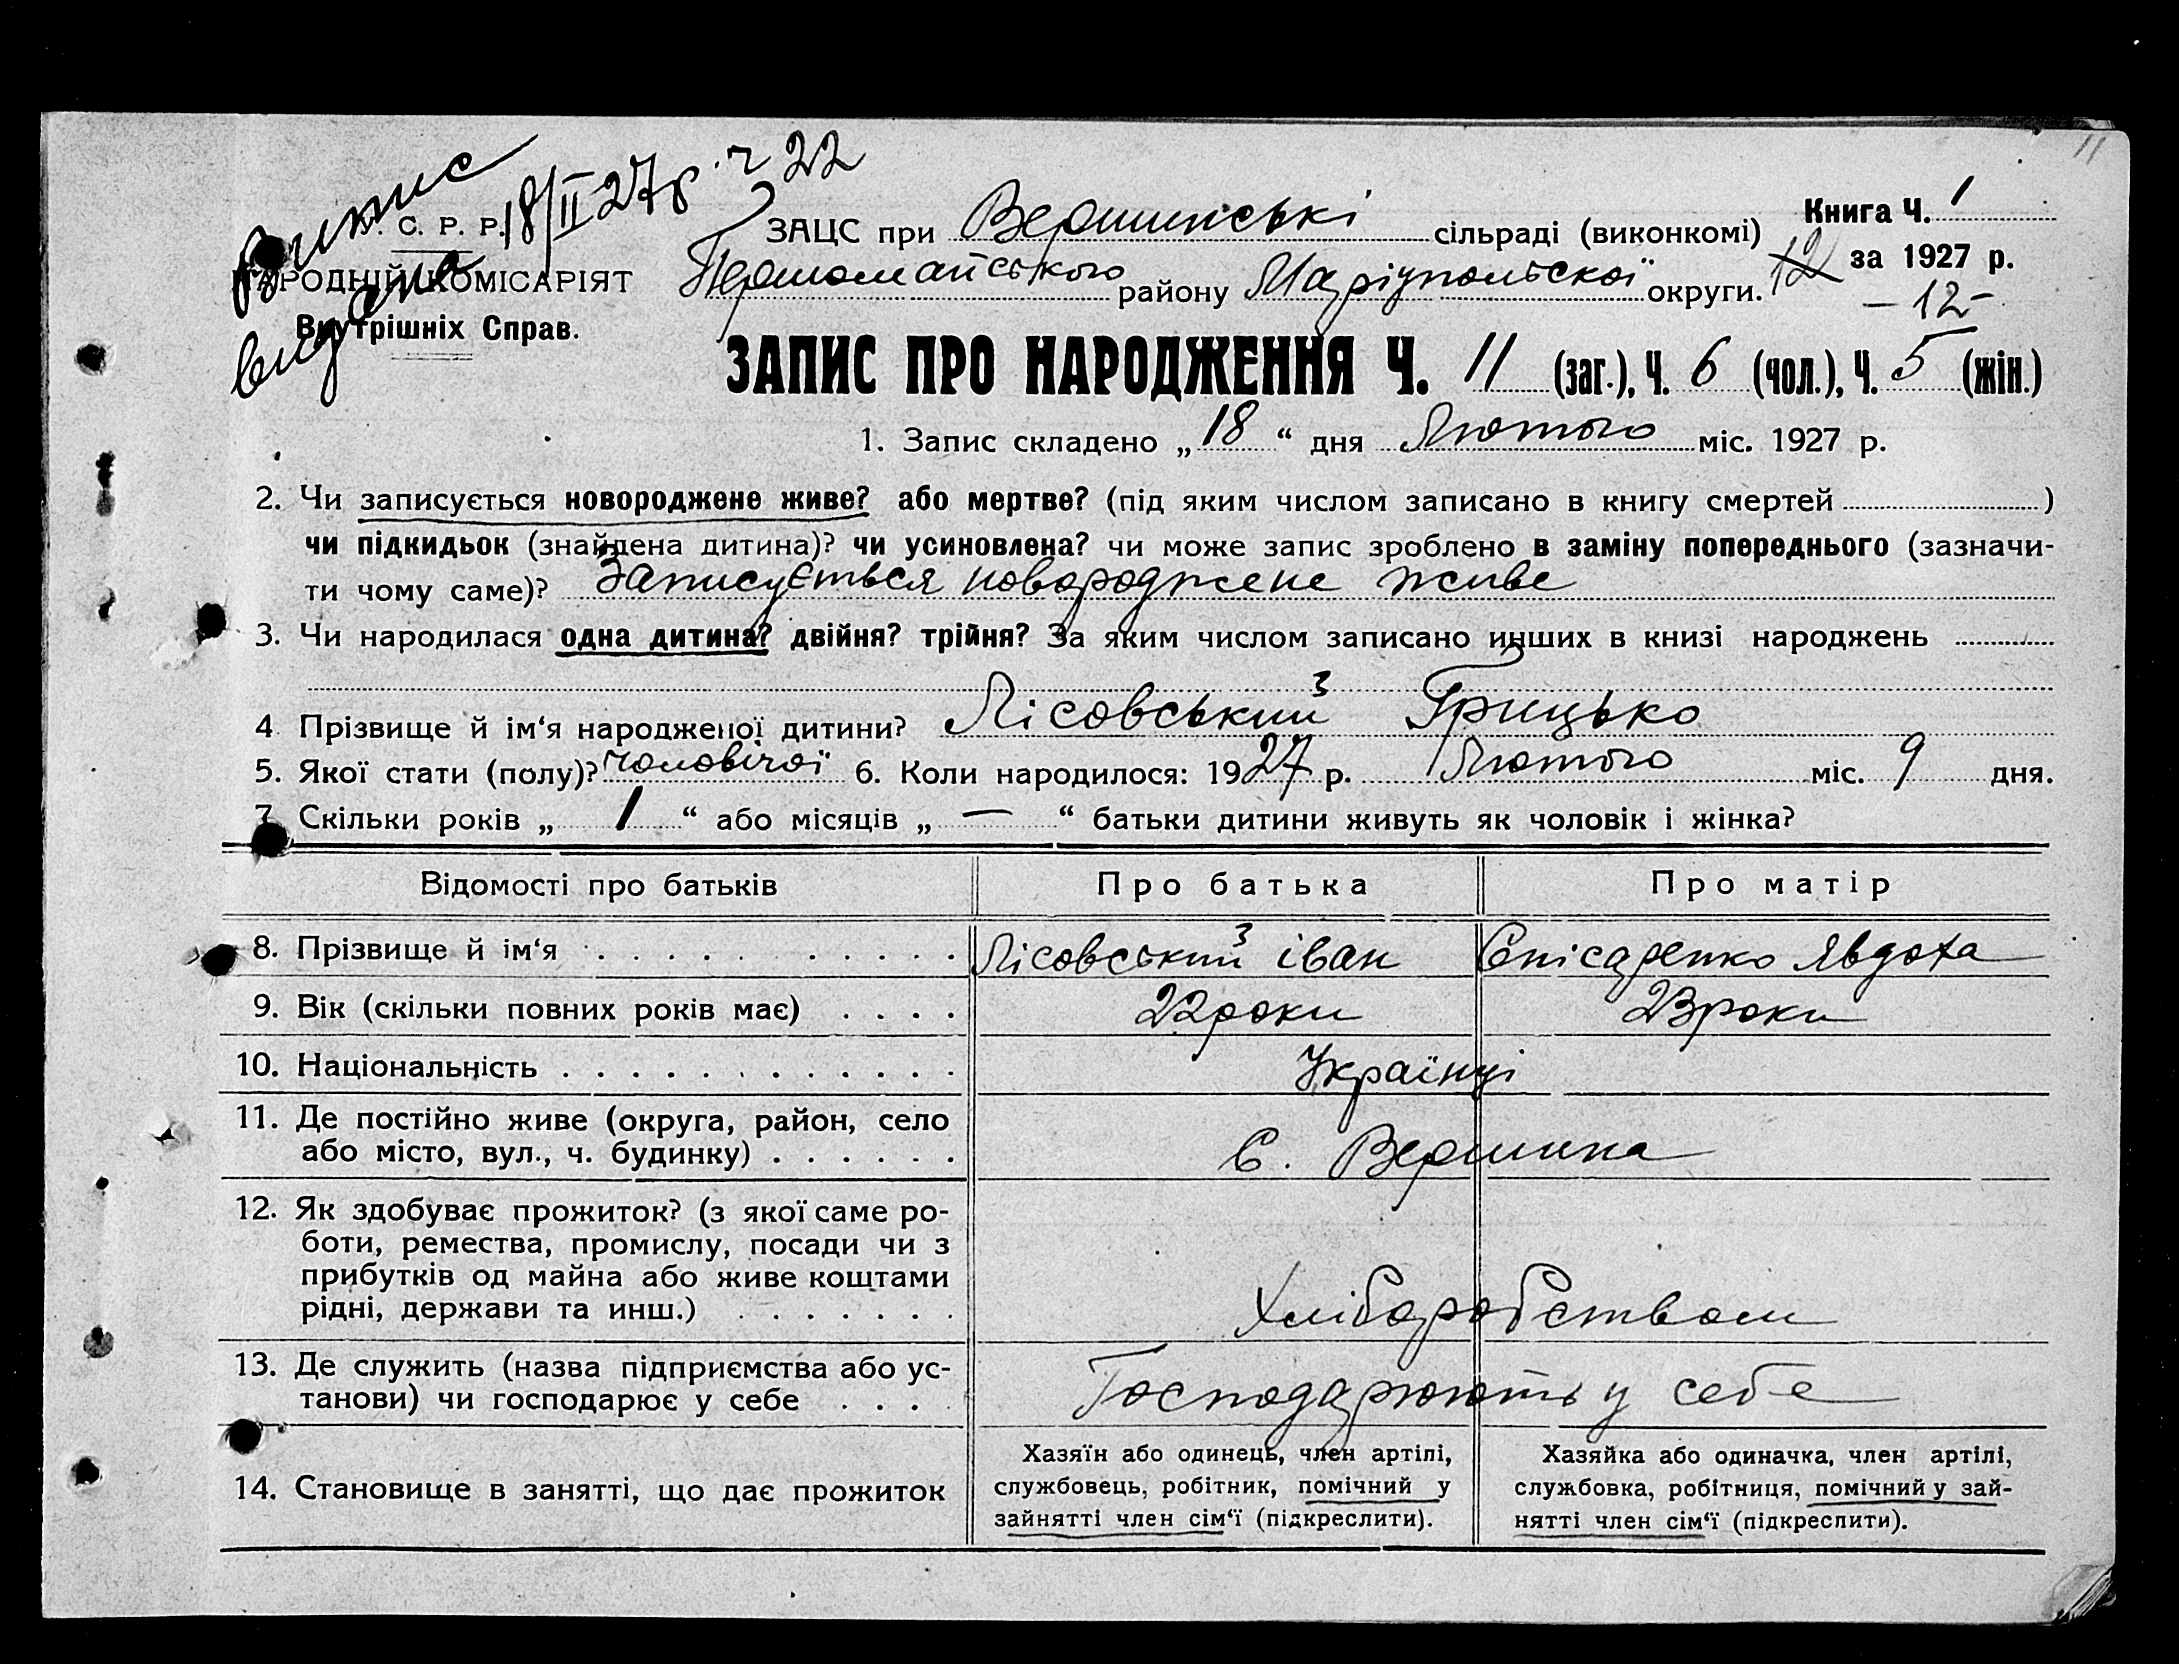 11
Випис
видана
18/II 27 р. ч 22
У. С. Р. Р.
НАРОДНІЙ КОМІСАРІЯТ
Внутрішніх Справ.
ЗАЦС при Вершинські сільраді (виконкомі)
Першомайського району Маріупольскої округи.
Книга Ч. 1
12 за 1927 р.
– 12 –
ЗАПИС ПРО НАРОДЖЕННЯ Ч. 11 (заг.), Ч. 6 (чол.), Ч. 5 (жін.)
1. Запис складено „ 18 “ дня Лютого міс. 1927 р.
2. Чи записується новороджене живе? або мертве? (під яким числом записано в книгу смертей )
чи підкидьок (знайдена дитина)? чи усиновлена? чи може запис зроблено в заміну попереднього (зазначи-
ти чому саме)? Записується новороджене живе
3. Чи народилася одна дитина? двійня? трійня? За яким числом записано инших в книзі народжень
4. Прізвище й ім‘я народженої дитини? Лісовський 3 Грицько
5. Якої стати (полу)? чоловічої 6. Коли народилося: 1927 р. Лютого міс. 9 дня.
7. Скільки років „ 1 “ або місяців „ — “ батьки дитини живуть як чоловік і жінка?
Відомості про батьків Про батька Про матір
8. Прізвище й ім‘я Лісовський 3 іван Єпісаренко Явдоха
9. Вік (скільки повних років має) 22 роки 23 роки
10. Національність Українці
11. Де постійно живе (округа, район, село
або місто, вул., ч. будинку) с. Вершина
12. Як здобуває прожиток? (з якої саме ро-
боти, ремества, промислу, посади чи з
прибутків од майна або живе коштами
рідні, держави та инш.) Хліборобством
13. Де служить (назва підприємства або ус-
танови) чи господарює у себе Господарюють у себе
14. Становище в занятті, що дає прожиток
Хазяїн або одинець, член артілі,
службовець, робітник, помічний у
зайнятті член сім‘ї (підкреслити).
Хазяйка або одиначка, член артілі,
службовка, робітниця, помічний у зай-
нятті член сім‘ї (підкреслити).